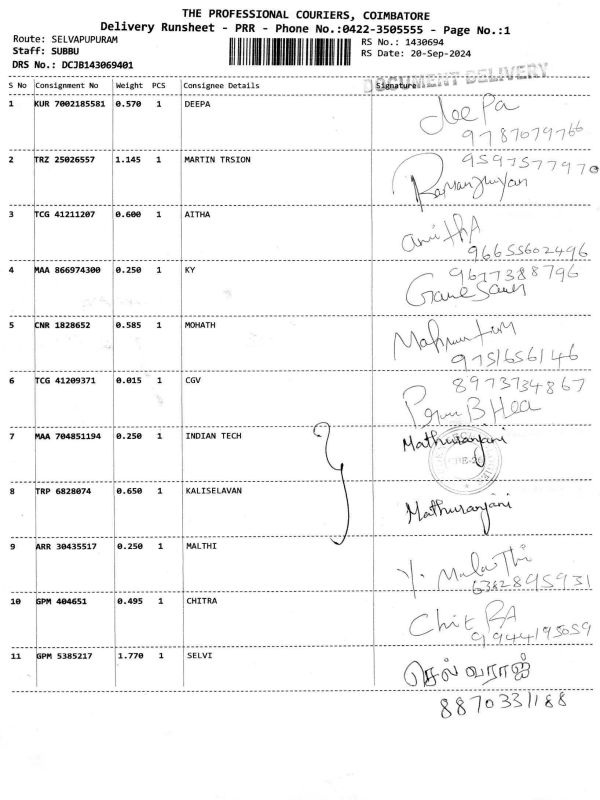 THE PROFESSIONAL COURIERS, COIMBATORE
Delivery Runsheet - PRR - Phone No.:0422-3505555 - Page No.:1
Route: SELVAPUPURAM
Staff: SUBBU
DRS No.: DCJB143069401
RS No.: 1430694
RS Date: 20-Sep-2024
DOCUMENT DELIVERY
S No Consignment No Weight PCS Consignee Details Signature
1 KUR 7002185581 0.570 1 DEEPA deePa
9787079766
2 TRZ 25026557 1.145 1 MARTIN TRSION 9597577970
3 TCG 41211207 0.600 1 AITHA anithA
96655602496
4 MAA 866974300 0.250 1 KY 9677388796
5 CNR 1828652 0.585 1 MOHATH
9751656146
6 TCG 41209371 0.015 1 CGV 8973734867
7 MAA 704851194 0.250 1 INDIAN TECH Mathuranjani
8 TRP 6828074 0.650 1 KALISELAVAN Mathuranjani
9 ARR 30435517 0.250 1 MALTHI Y. MalaThi
6382895931
10 GPM 404651 0.495 1 CHITRA ChitRA
9944195059
11 GPM 5385217 1.770 1 SELVI செல்வராஜ்
8870331188